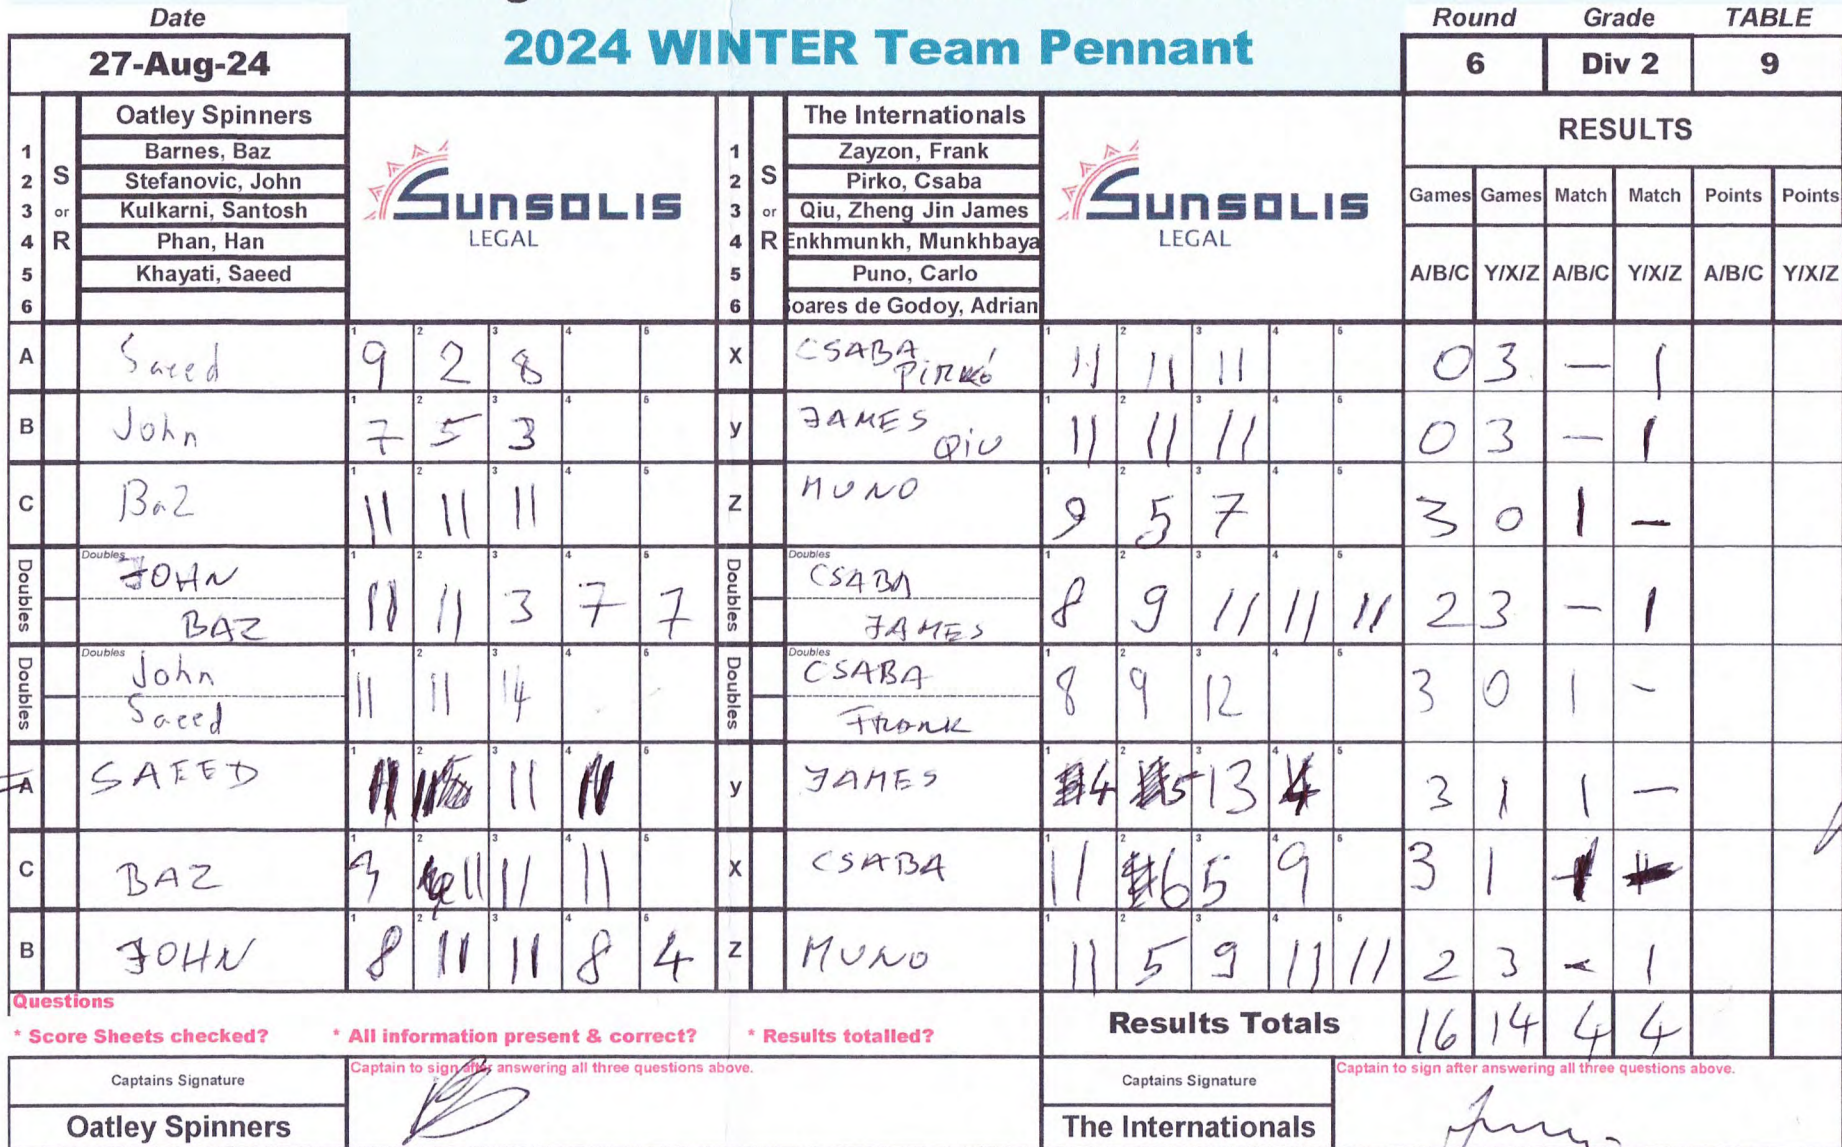 Date
27-Aug-24
2024 WINTER Team Pennant
Round Grade TABLE
6 Div 2 9
Oatley Spinners
1 Barnes, Baz
2 S Stefanovic, John
3 or Kulkarni, Santosh
4 R Phan, Han
5 Khayati, Saeed
6
SUNSOLIS
LEGAL
The Internationals
1 Zayzon, Frank
2 S Pirko, Csaba
3 or Qiu, Zheng Jin James
4 R Enkhmunkh, Munkhbaya
5 Puno, Carlo
6 Soares de Godoy, Adrian
SUNSOLIS
LEGAL
RESULTS
Games Games Match Match Points Points
A/B/C Y/X/Z A/B/C Y/X/Z A/B/C Y/X/Z
A Saeed 9 2 8 X CSABA PIRKÓ 11 11 11 0 3 — 1
B John 7 5 3 y JAMES QIU 11 11 11 0 3 — 1
C Baz 11 11 11 Z MUNO 9 5 7 3 0 1 —
Doubles JOHN BAZ 11 11 3 7 7 Doubles CSABA JAMES 8 9 11 11 11 2 3 — 1
Doubles John Saeed 11 11 14 Doubles CSABA FRANK 8 9 12 3 0 1 -
A SAEED 11 11 11 y JAMES 4 5 13 4 3 1 1 —
C BAZ 3 11 11 11 X CSABA 11 6 5 9 3 1 1 —
B JOHN 8 11 11 8 4 Z MUNO 11 5 9 11 11 2 3 - 1
Questions
* Score Sheets checked? * All information present & correct? * Results totalled?
Results Totals 16 14 4 4
Captains Signature
Captain to sign after answering all three questions above.
Oatley Spinners
Captains Signature
Captain to sign after answering all three questions above.
The Internationals